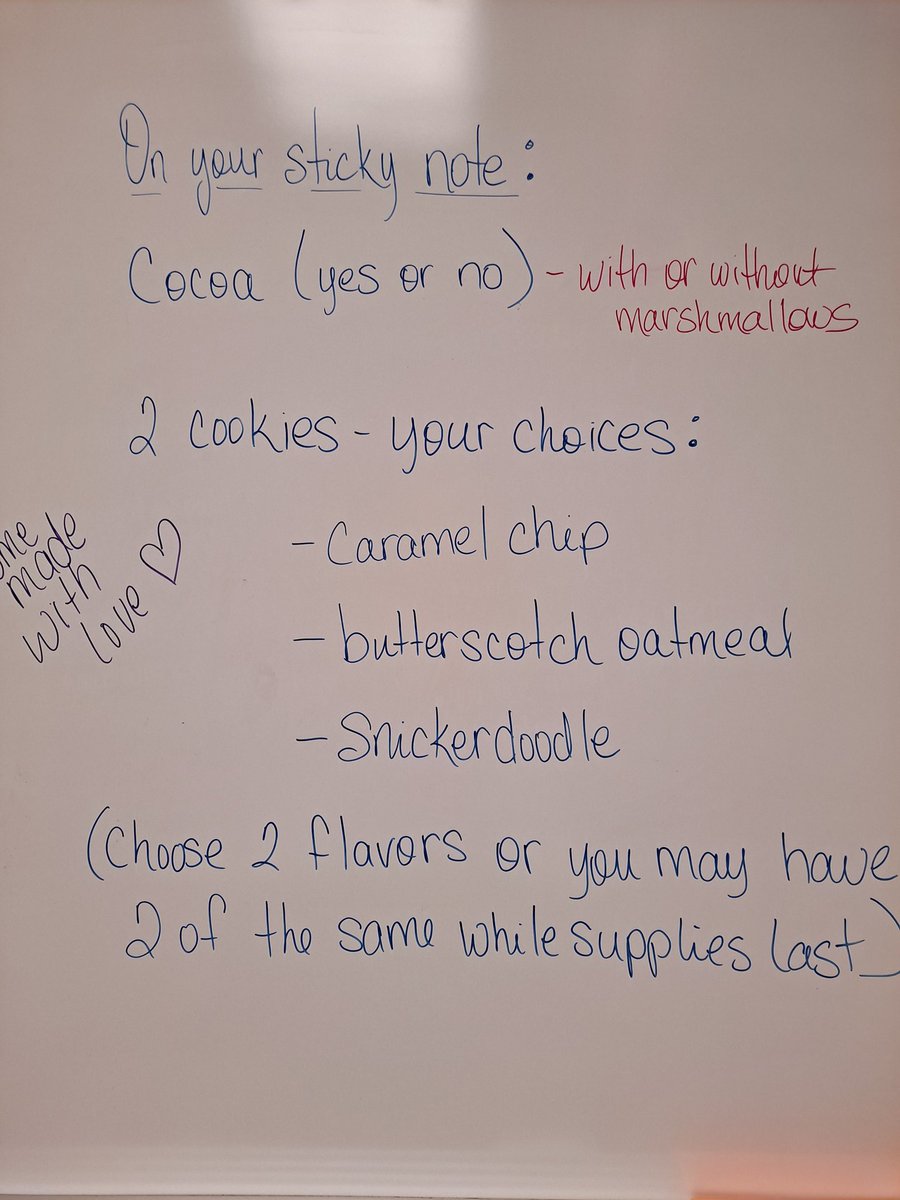 On your sticky note:
Cocoa (yes or no) - with or without
marshmallows
2 cookies - your choices:
- Caramel chip
- butterscotch oatmeal
- Snickerdoodle
made
with
love ♡
(Choose 2 flavors or you may have
2 of the same while supplies last)